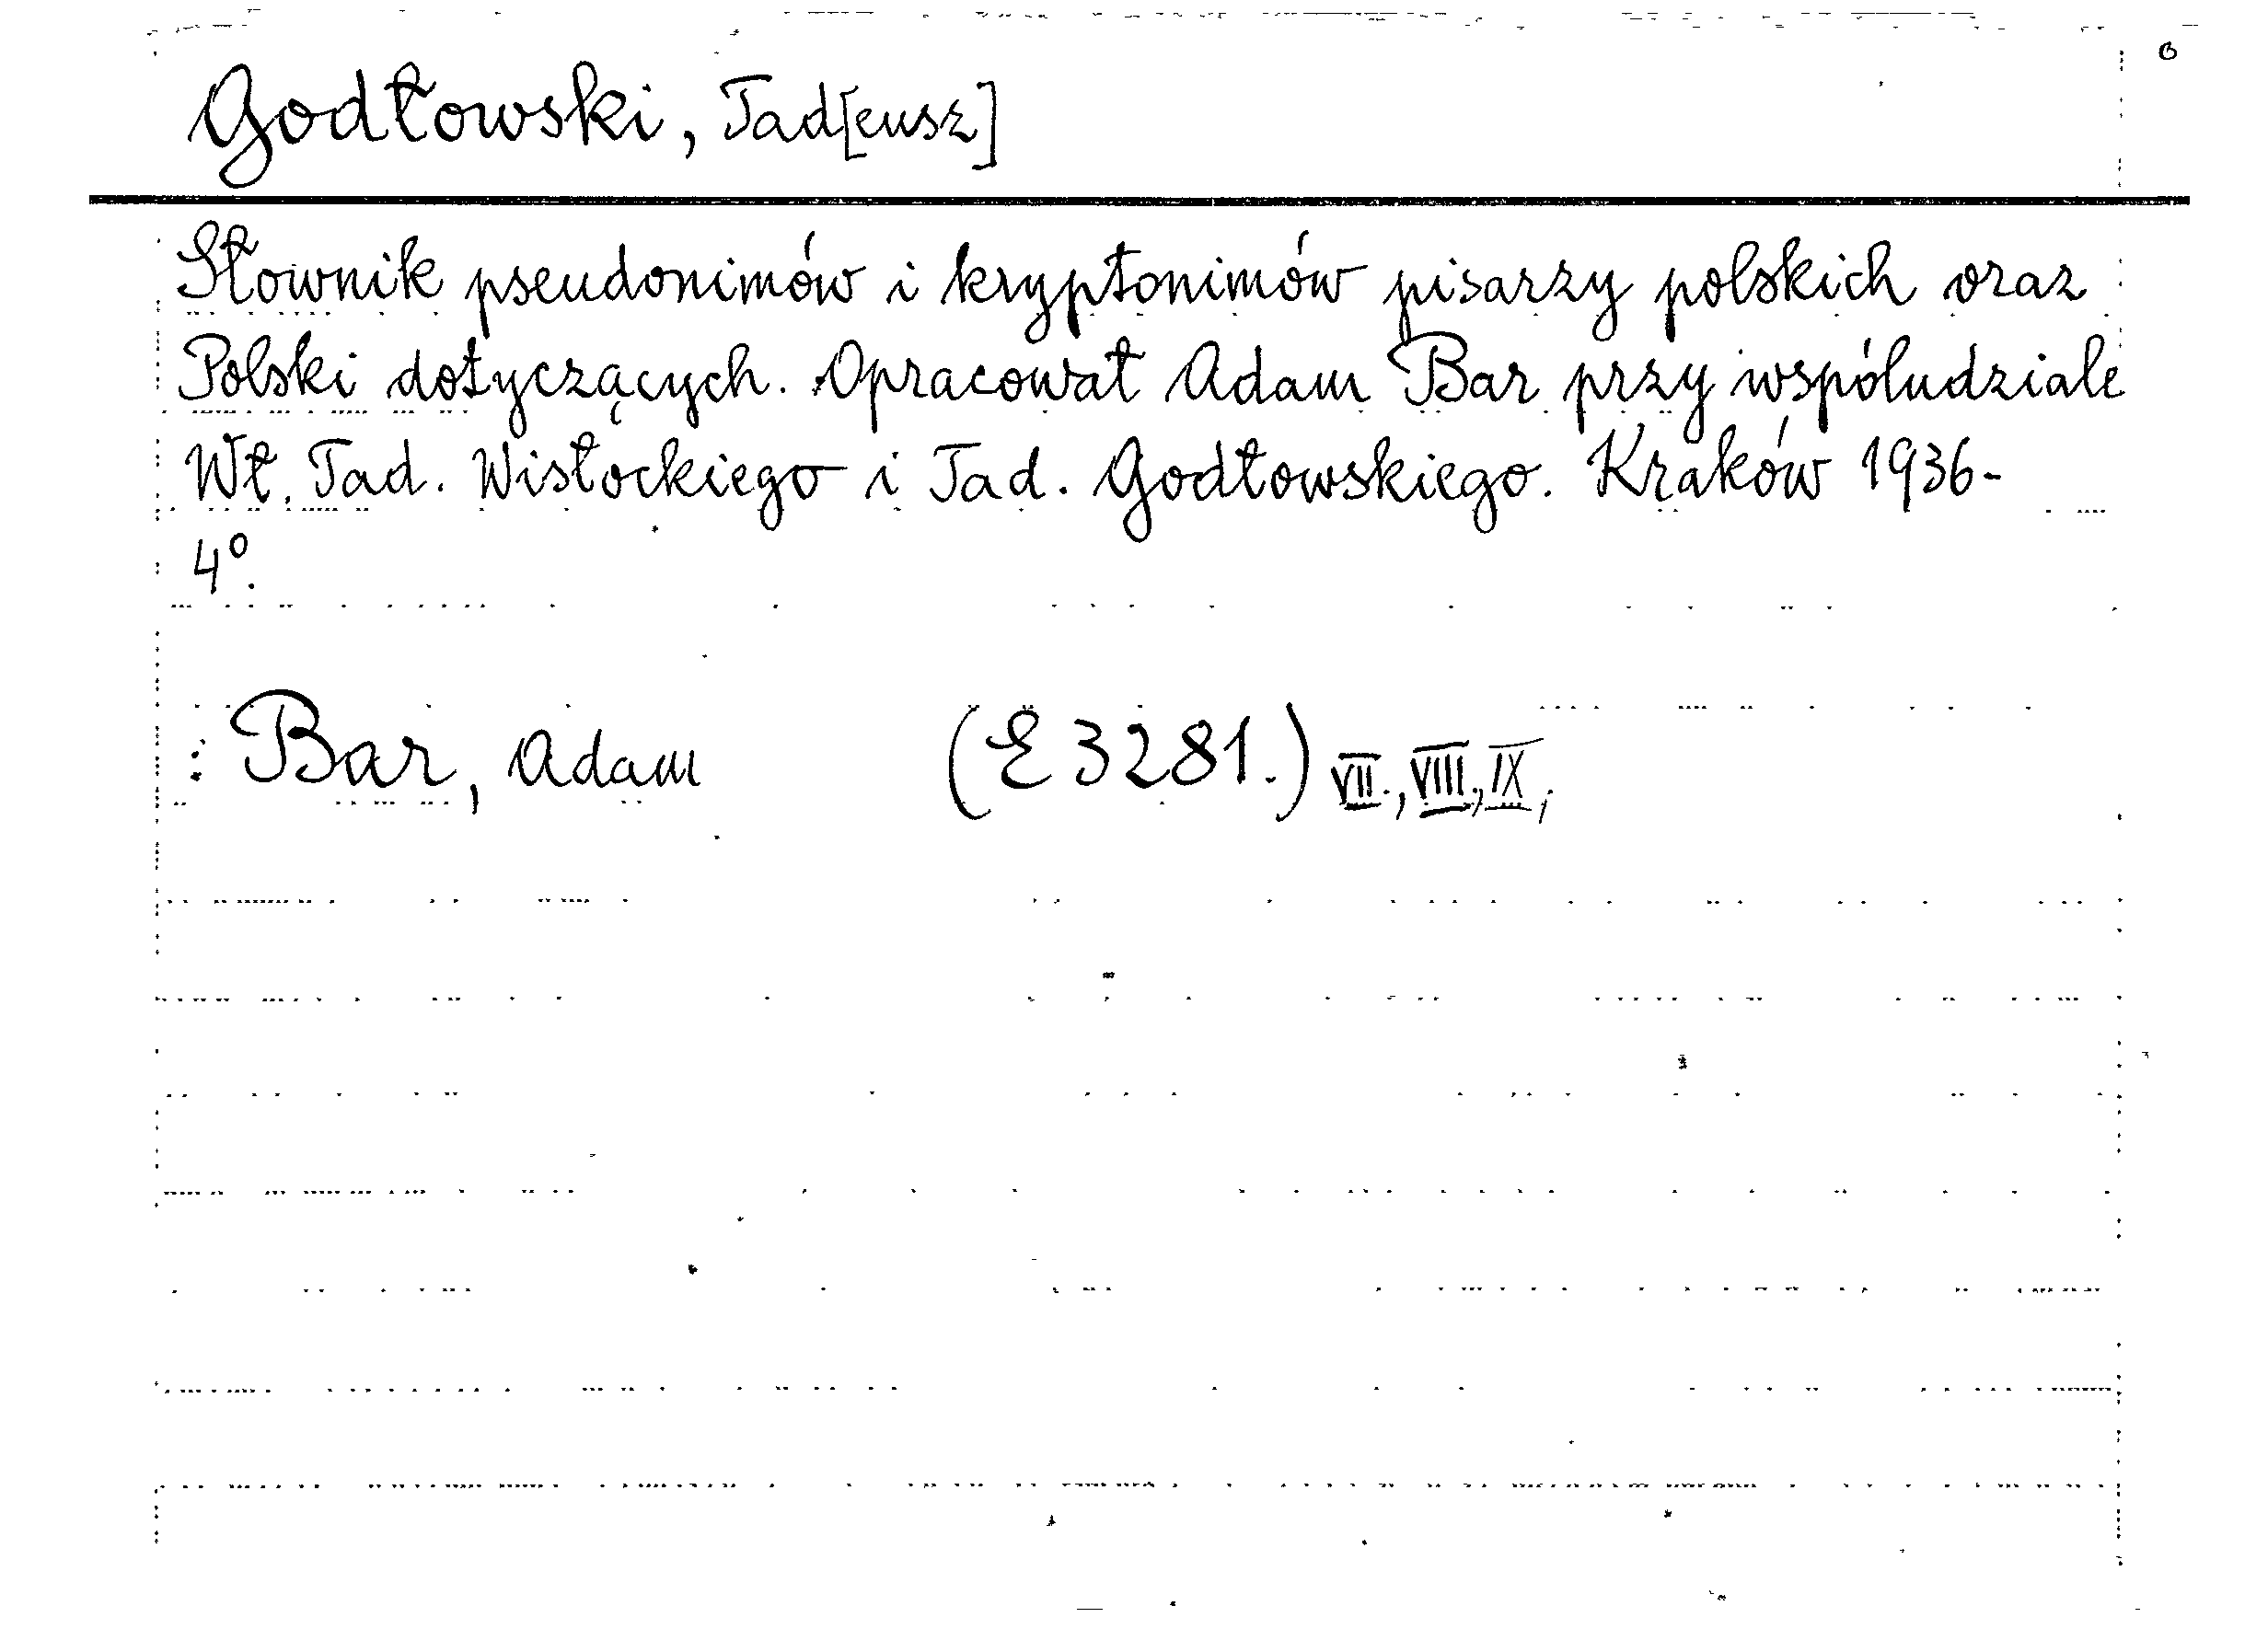 Godłowski, Tad[eusz]
Słownik pseudonimów i kryptonimów pisarzy polskich oraz
Polski dotyczących. Opracował Adam Bar przy współudziale
Wł. Tad. Wisłockiego i Tad. Godłowskiego. Kraków 1936-
4º.
: Bar, Adam (E 3281.) VII., VIII., IX,